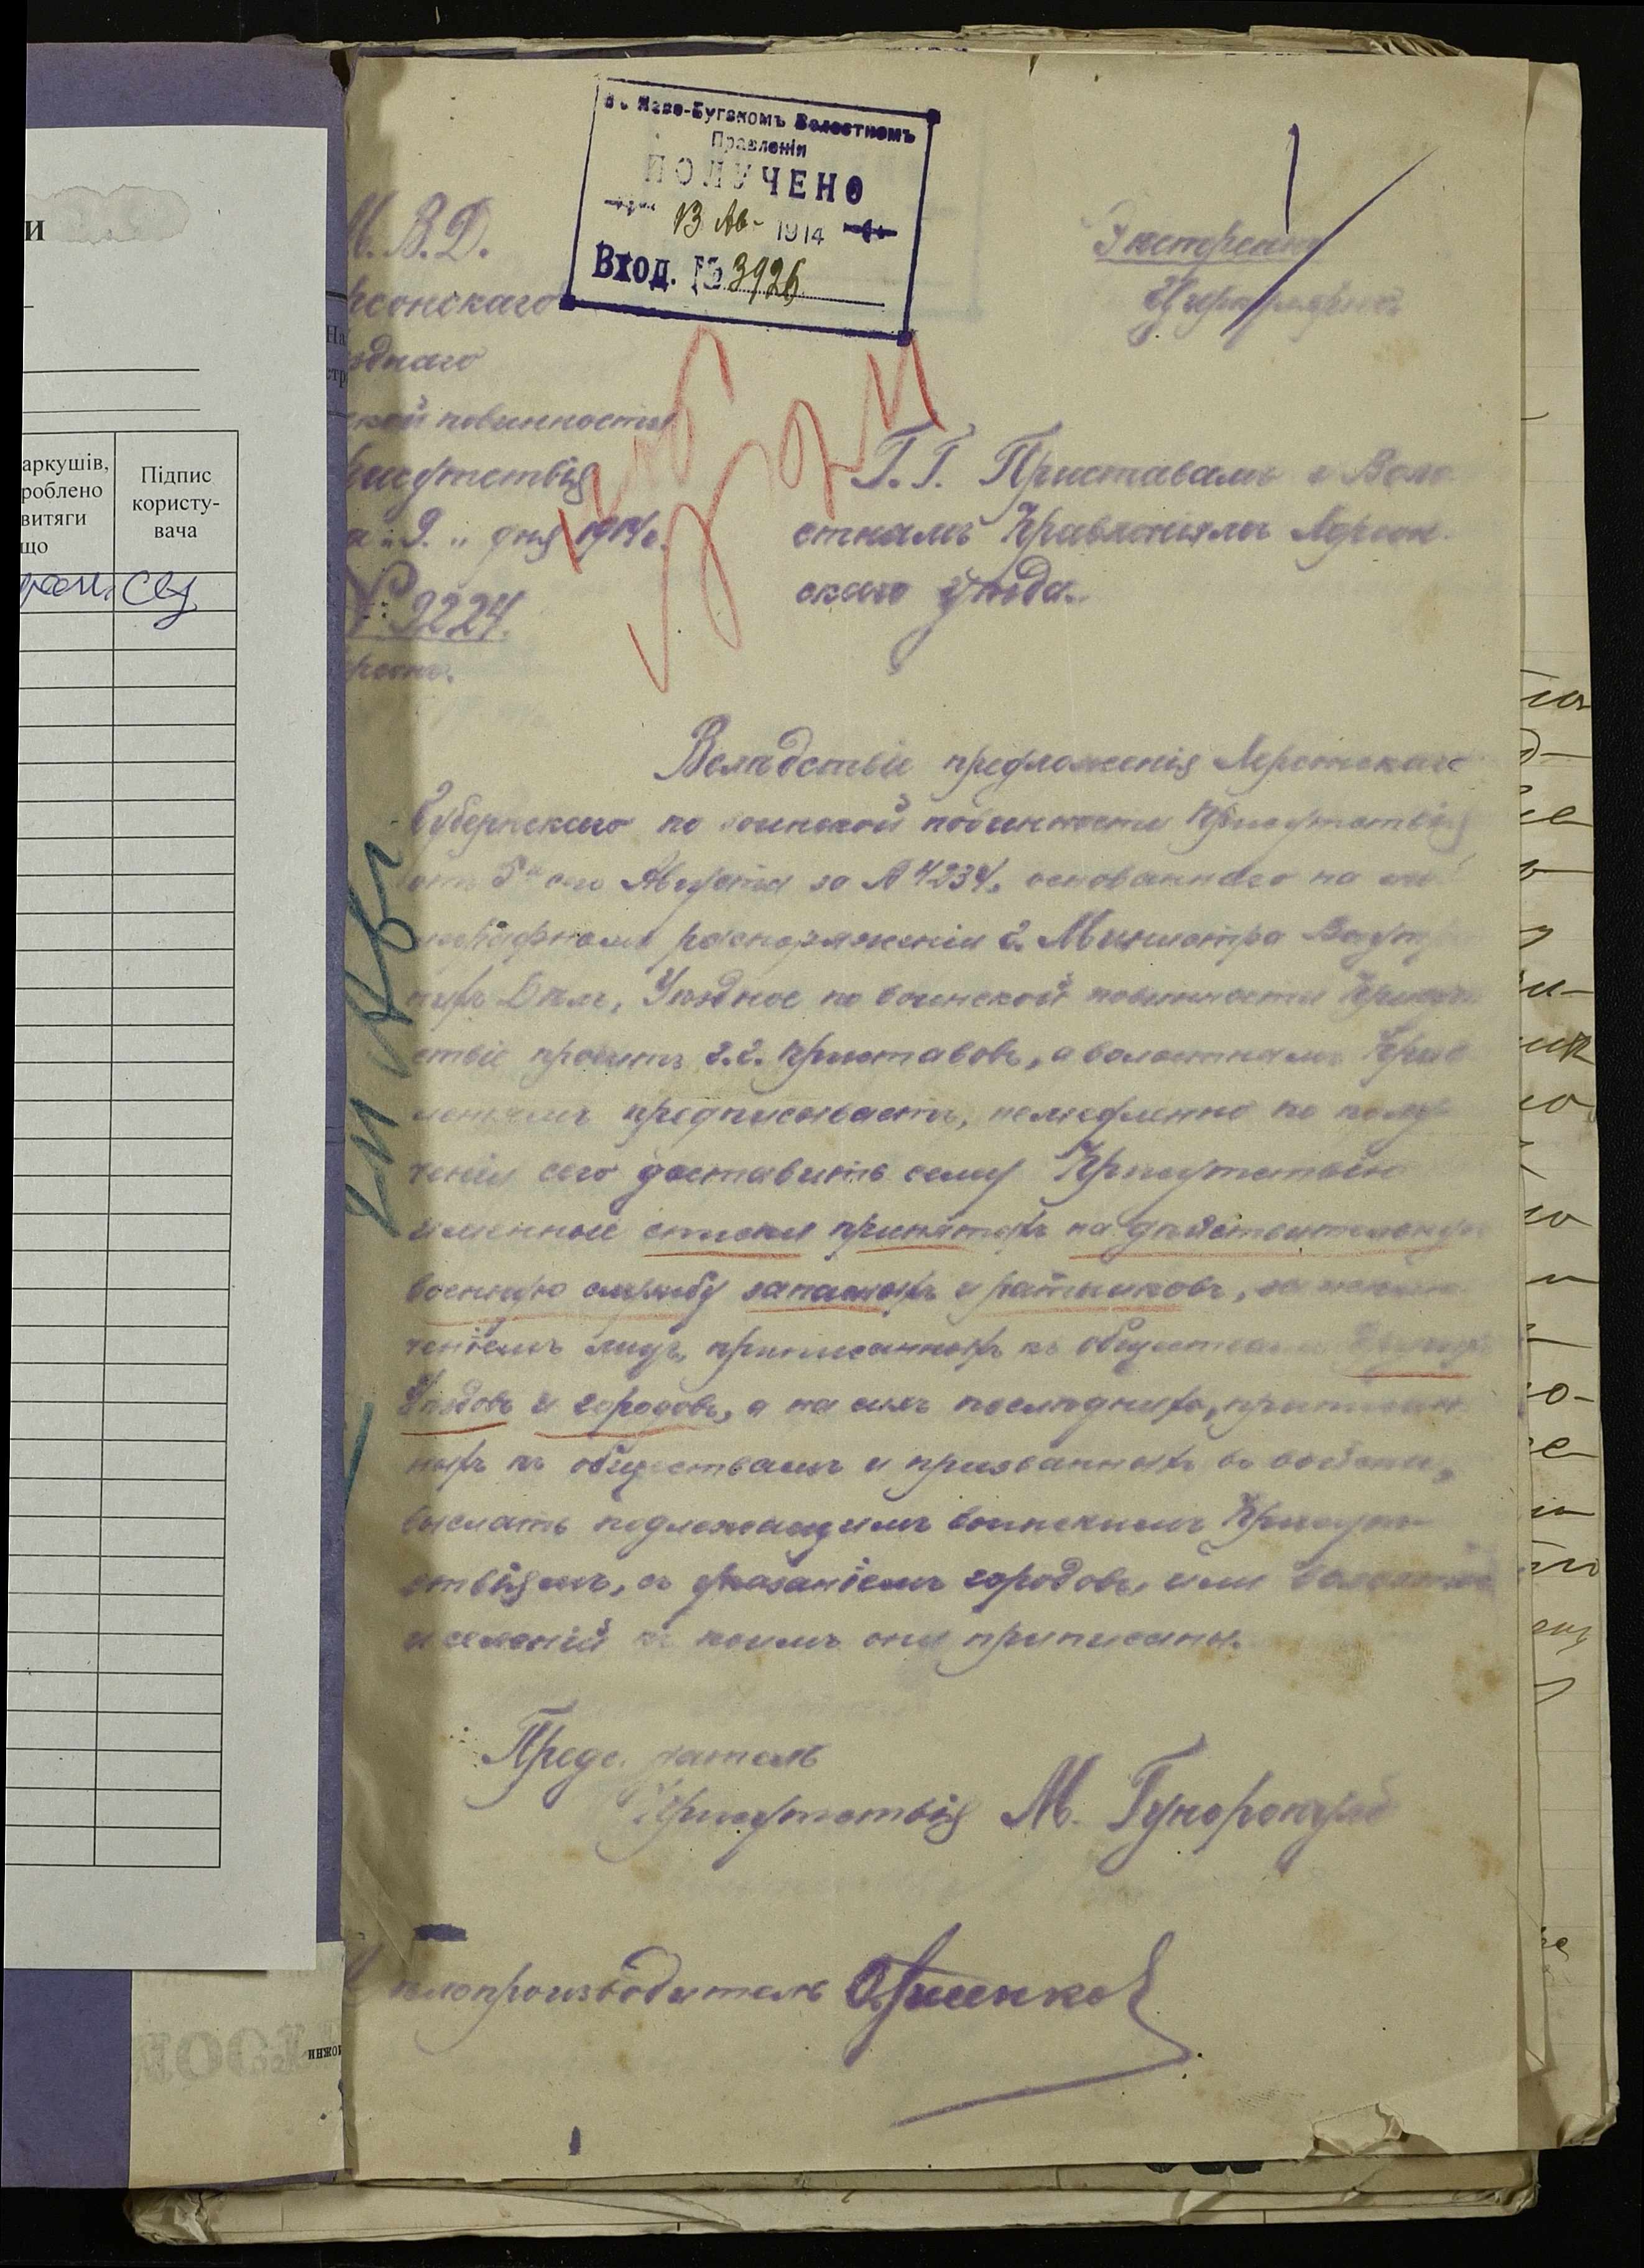 и
аркушів,
роблено
витяги
що
Підпис
користу-
вача
въ Ново-Бугскомъ Волостномъ
Правленіи
ПОЛУЧЕНО
13 Ав- 1914
Вход. № 3926
М. В. Д.
рсонскаго
зднаго
ской повинности
рисутствія
а „9„ дня 1914 г.
№ 9224.
Экстренно
Циркулярно
Г.Г. Приставамъ и Воло
стнымъ Правленіямъ Херсон-
скаго уѣзда.
Вслѣдствіе предложенія Херсонскаго
Губернскаго по воинской повинности Присутствія
отъ 5го сего Августа за № 4234, основаннаго на
распоряженіи г. Министра Внутр
нихъ Дѣлъ, Уѣздное по воинской повинности Присут
ствіе проситъ г.г. Приставовъ, а волостнымъ Прав
леніямъ предписываетъ, немедленно по полу
ченіи сего доставить сему Присутствію
именные списки принятыхъ на дѣйствительную
военную службу запасныхъ и ратниковъ, за исклю
ченіемъ лицъ, приписанныхъ къ обществамъ другихъ
Уѣздовъ и городовъ, а на сихъ послѣднихъ, приписан
ныхъ къ обществамъ и призванныхъ въ войска,
выслать подлежащимъ воинскимъ Присут
ствіямъ, съ указаніемъ городовъ, или волостей
и селеній къ коимъ они приписаны.
Предсѣдатель
Присутствія М.
Дѣлопроизводитель